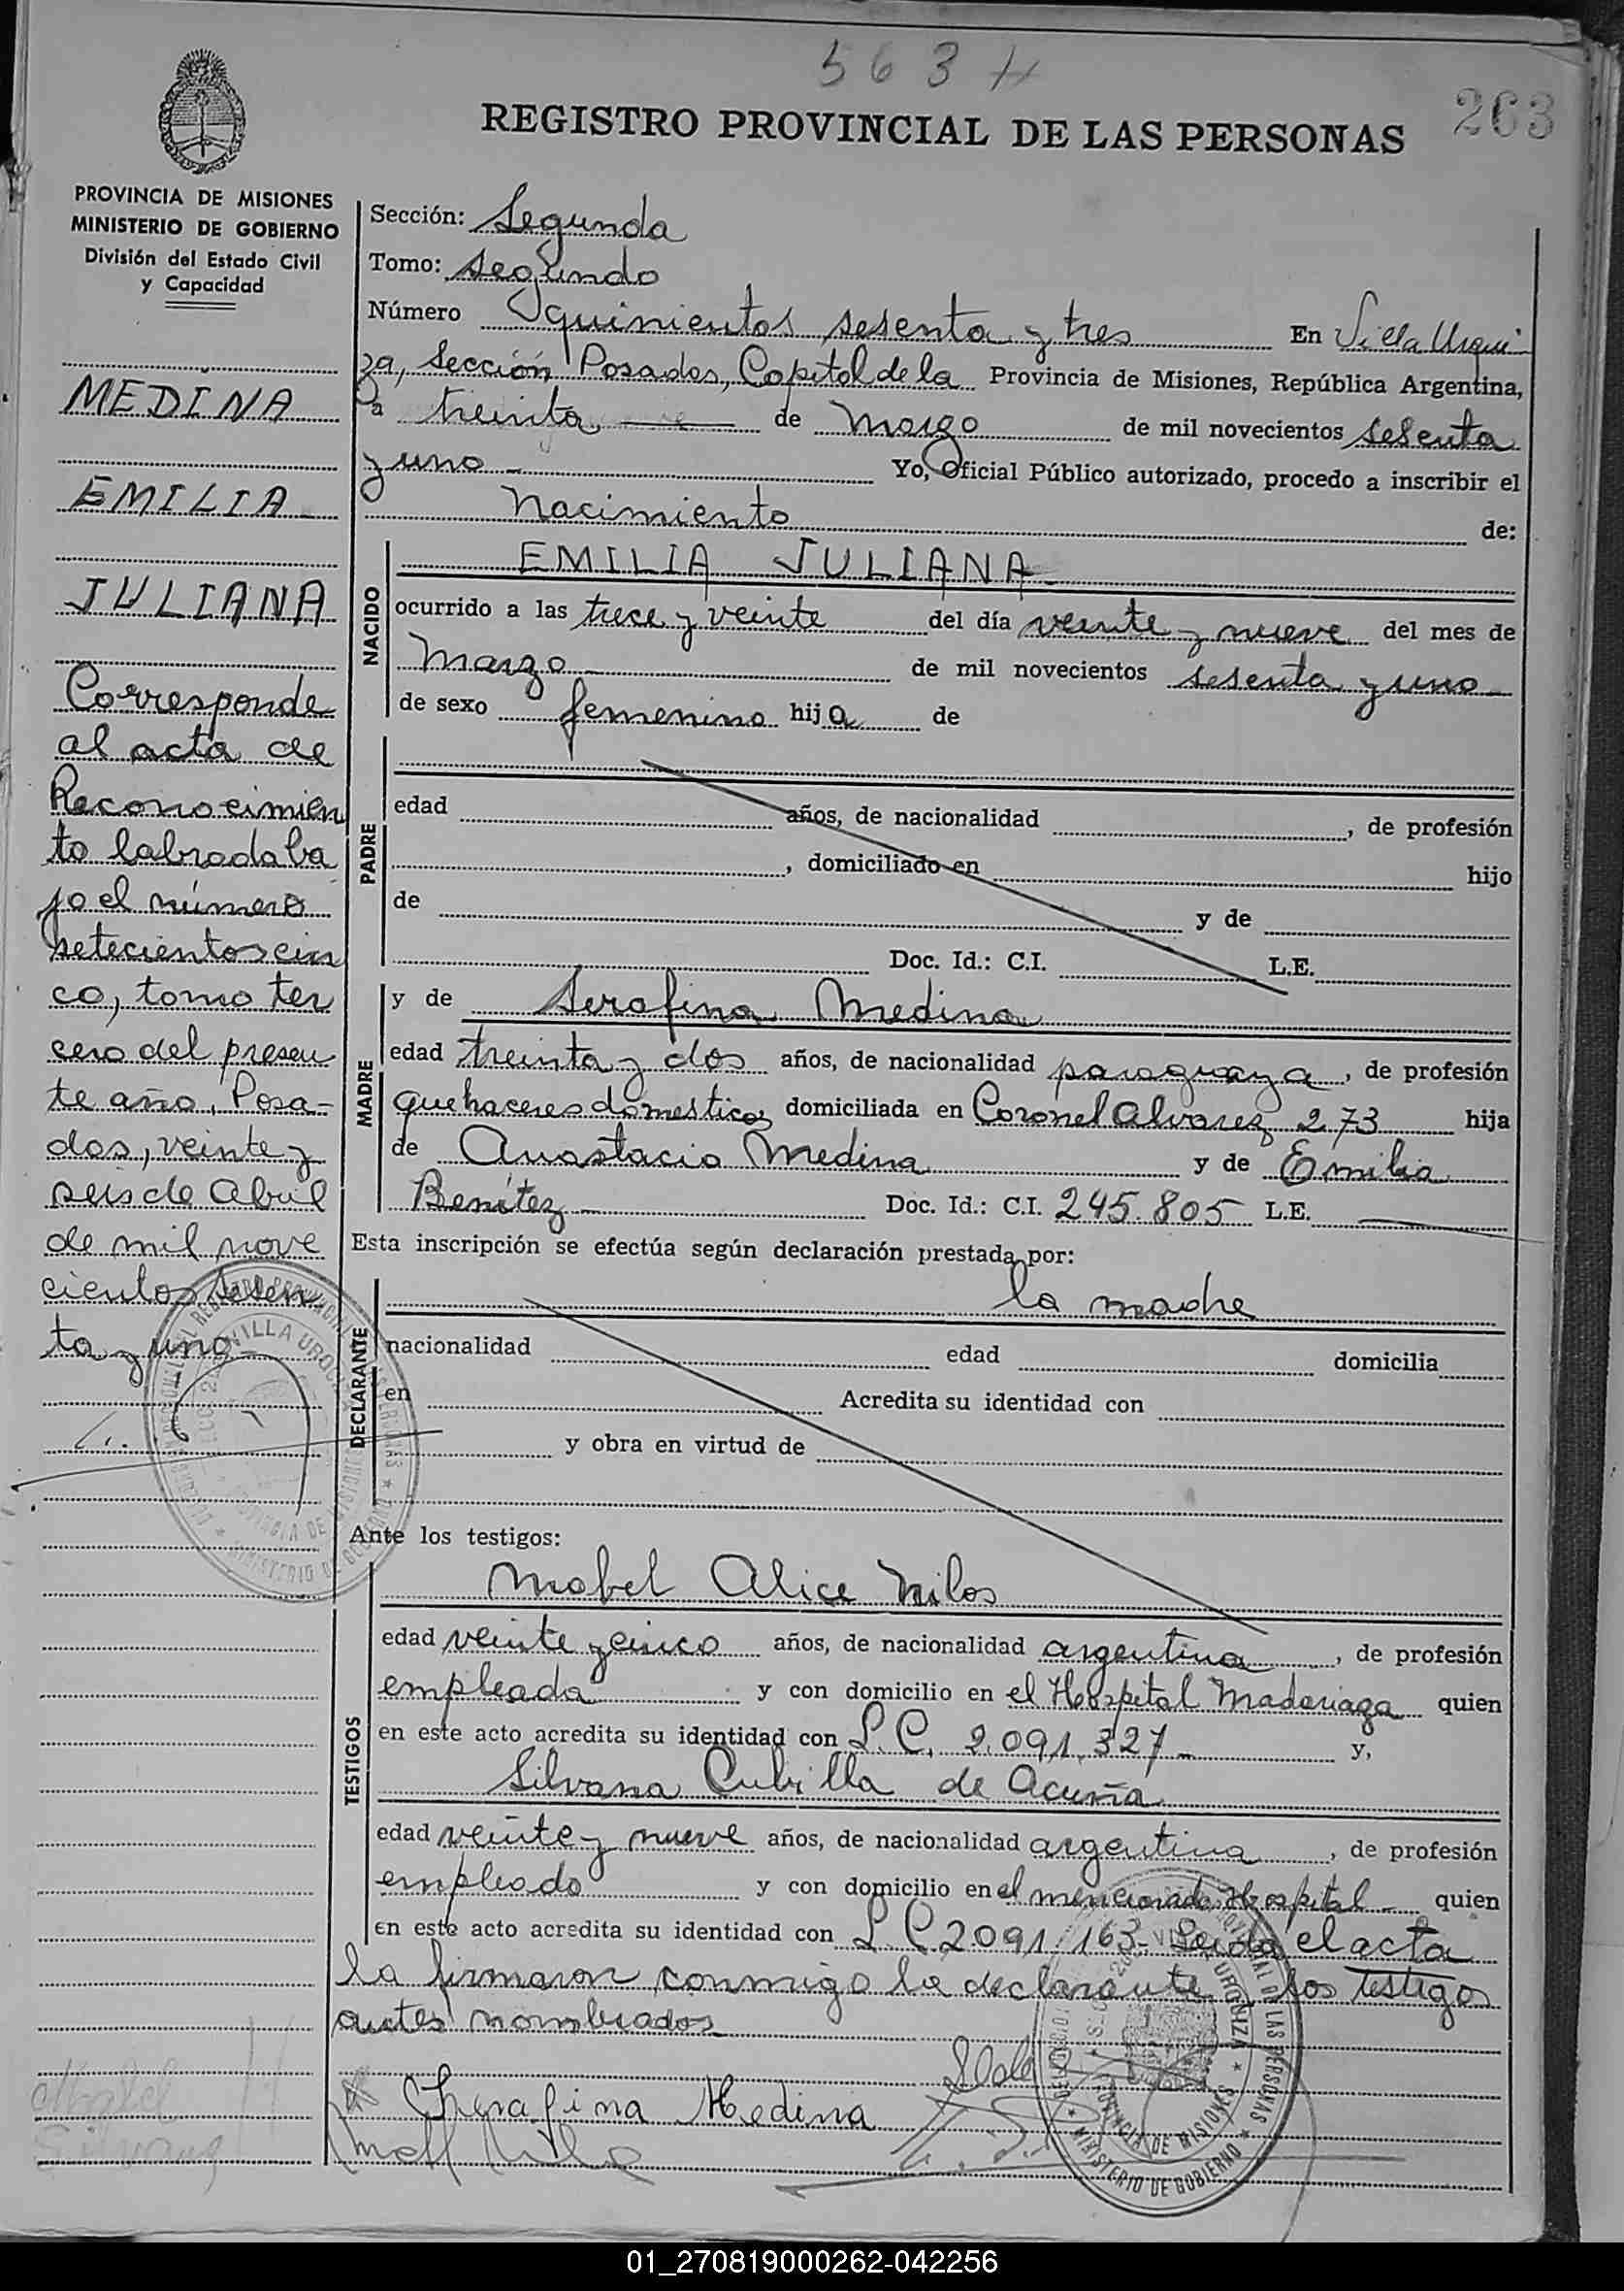 563
263
REGISTRO PROVINCIAL DE LAS PERSONAS
PROVINCIA DE MISIONES
MINISTERIO DE GOBIERNO
División del Estado Civil
y Capacidad
MEDINA
EMILIA
JULIANA
Corresponde
al acta de
Reconocimien
to labrada ba
jo el número
setecientos cin
co, tomo ter
cero del presen
te año, Posa-
das, veinte y
seis de Abril
de mil nove
cientos sesen
ta y uno
Sección: Segunda
Tomo: segundo
Número quinientos sesenta y tres En Villa Urqui
za, Sección Posadas, Capital de la Provincia de Misiones, República Argentina,
a treinta de marzo de mil novecientos sesenta
y uno Yo, Oficial Público autorizado, procedo a inscribir el
nacimiento de:
NACIDO
EMILIA JULIANA
ocurrido a las trece y veinte del día veinte y nueve del mes de
marzo de mil novecientos sesenta y uno
de sexo femenino hija de
PADRE
edad años, de nacionalidad , de profesión
, domiciliado en hijo
de y de
Doc. Id.: C.I. L.E.
MADRE
y de Serafina Medina
edad treinta y dos años, de nacionalidad paraguaya, de profesión
quehaceres domesticos domiciliada en Coronel Alvarez 273 hija
de Anastacio Medina y de Emilia
Benítez Doc. Id.: C.I. 245.805 L.E.
Esta inscripción se efectúa según declaración prestada por:
DECLARANTE
la madre
nacionalidad edad domicilia
en Acredita su identidad con
y obra en virtud de
Ante los testigos:
TESTIGOS
Mabel Alice Milos
edad veinte y cinco años, de nacionalidad argentina, de profesión
empleada y con domicilio en el Hospital Madariaga quien
en este acto acredita su identidad con L.C. 2.091.327 y,
Silvana Cubilla de Acuña
edad veinte y nueve años, de nacionalidad argentina, de profesión
empleado y con domicilio en el mencionado Hospital quien
en este acto acredita su identidad con L C 2.091.163- Leida el acta
la firmaron conmigo la declarante y los testigos
antes nombrados
Cherafina Medina
MINISTERIO DE GOBIERNO
PROVINCIA DE MISIONES
01_270819000262-042256